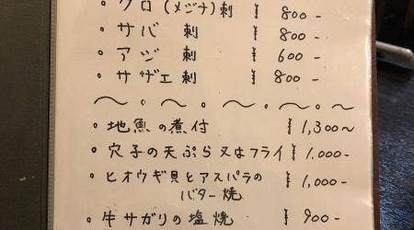 ・クロ(メジナ)刺 ¥800-
・サバ 刺 ¥800-
・アジ 刺 ¥600-
・サザエ刺 ¥800-
〜・〜。〜・〜。〜
・地魚の煮付 ¥1,300〜
・穴子の天ぷら又はフライ ¥1,000-
・ヒオウギ貝とアスパラの
バター焼 ¥1,000-
・牛サガリの塩焼 ¥900-